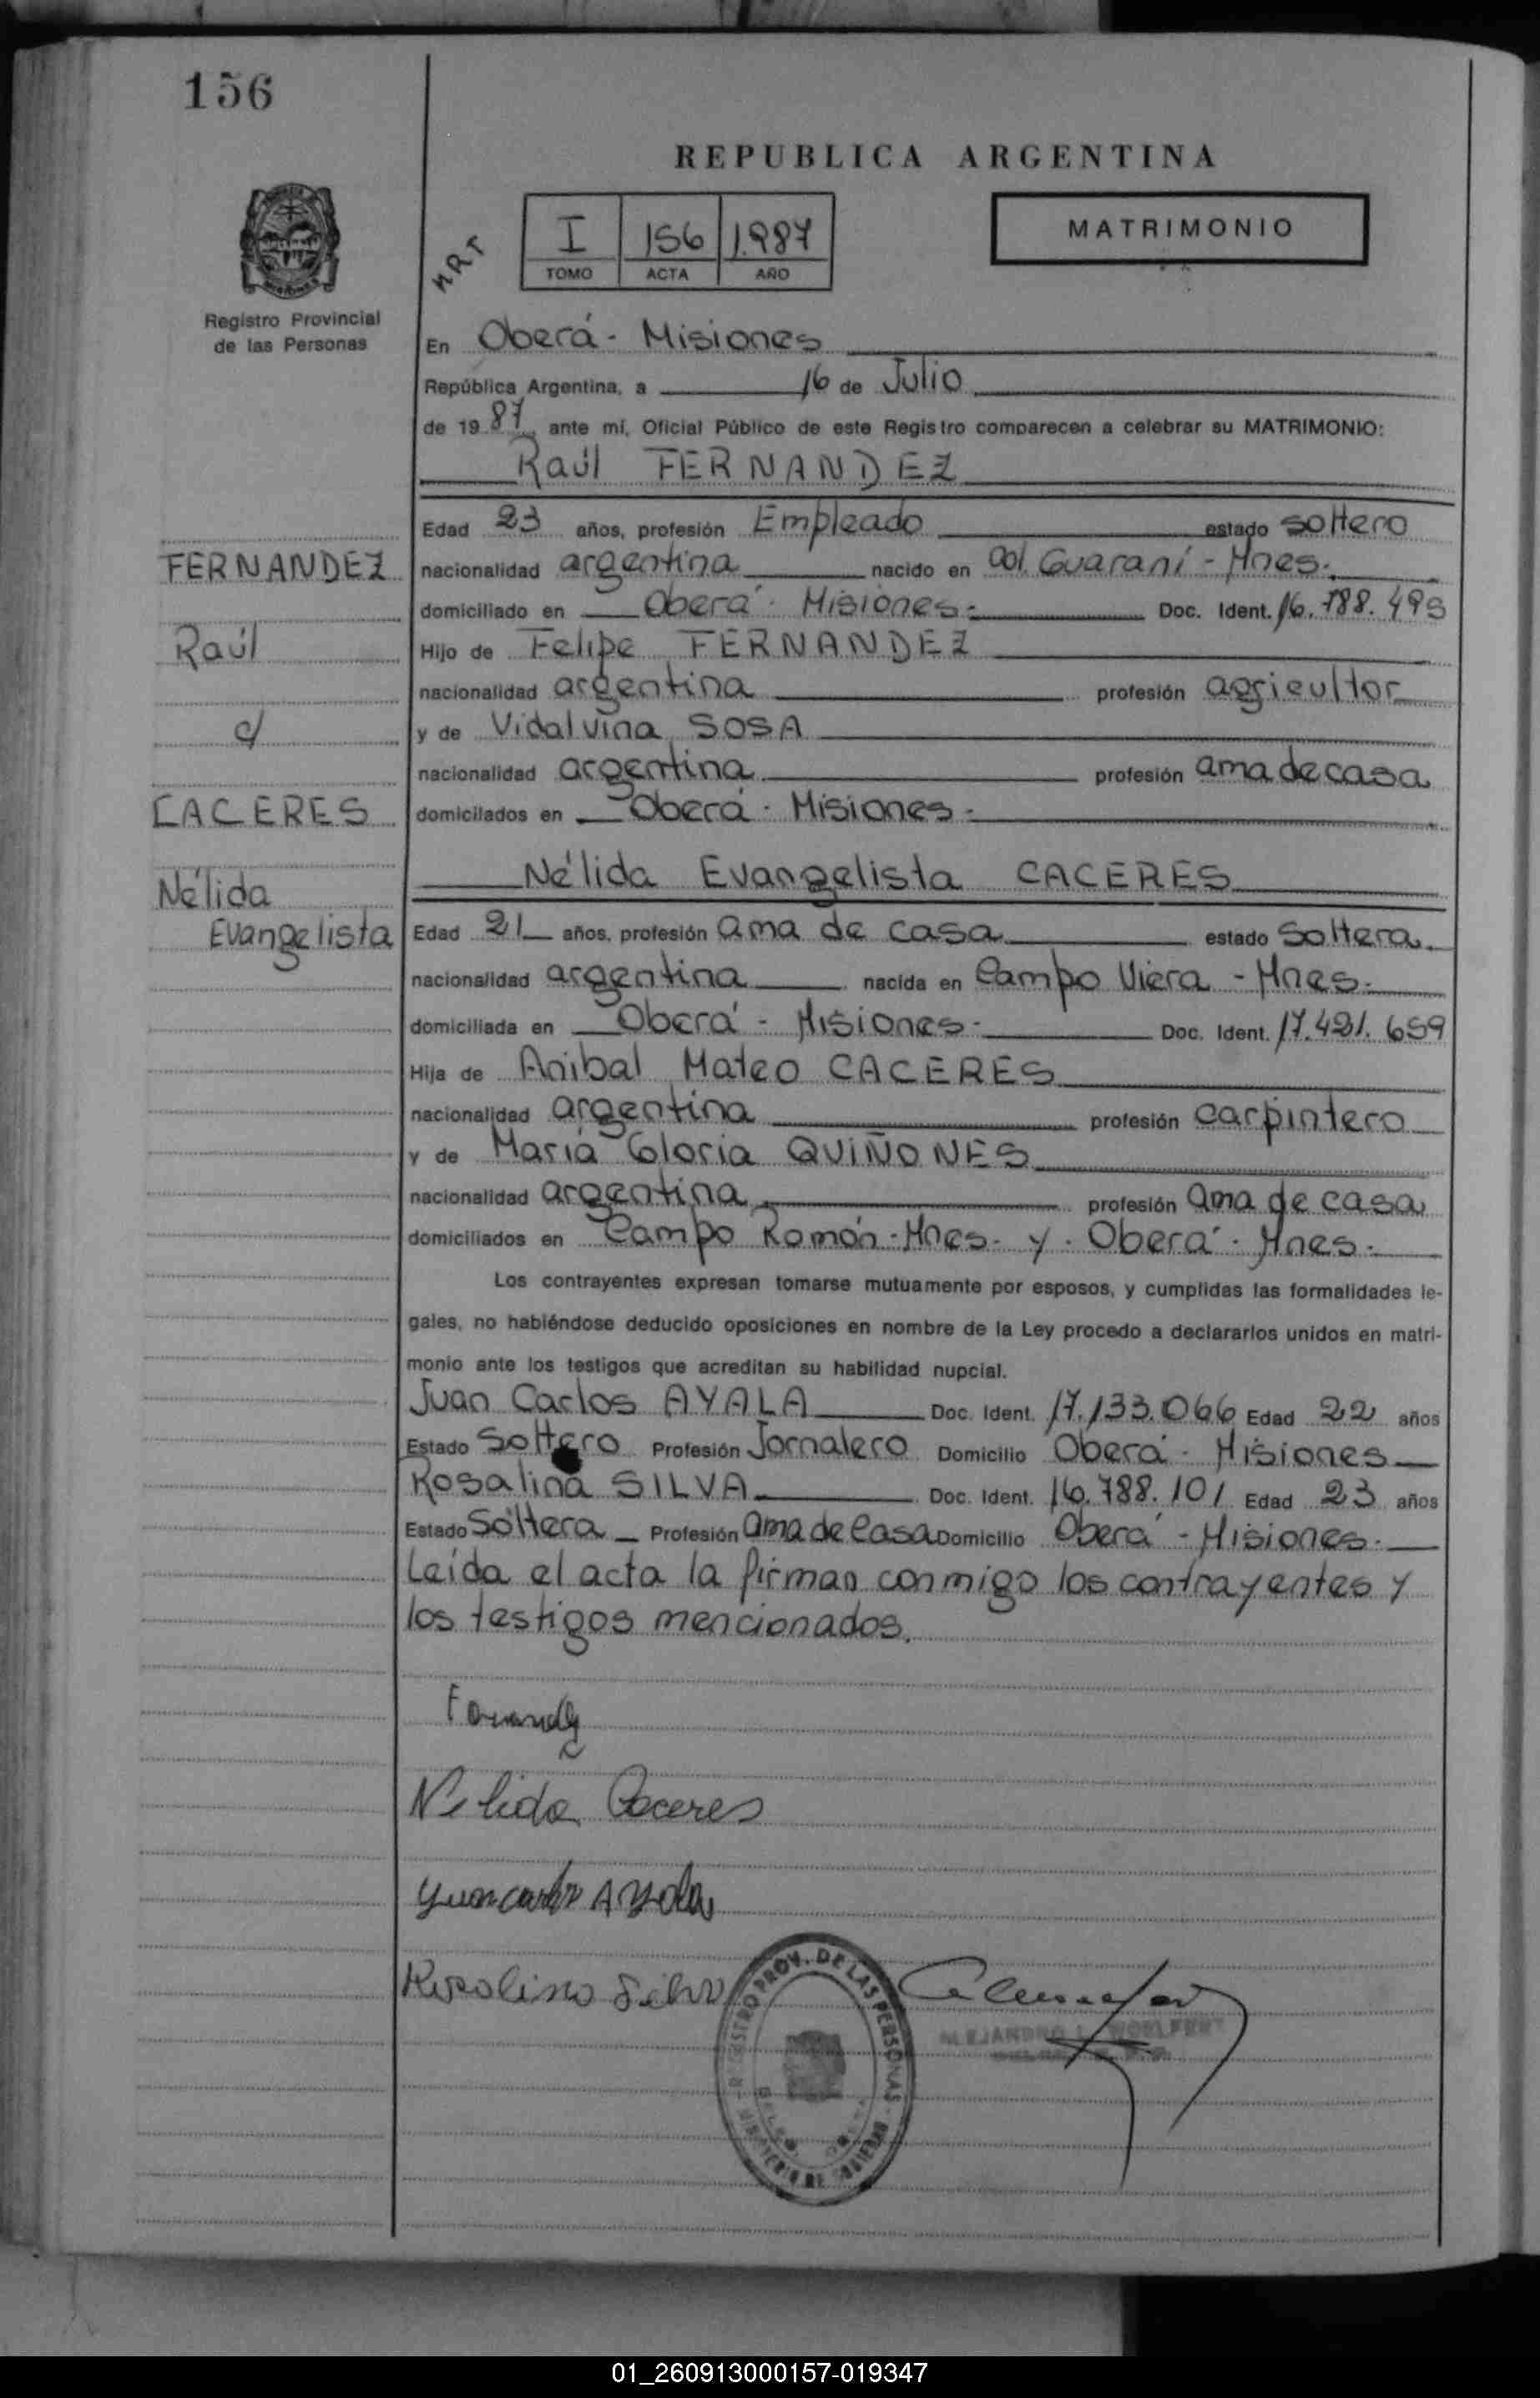 156
REPUBLICA ARGENTINA
MATRIMONIO
I 156 1.987
TOMO ACTA AÑO
Registro Provincial
de las Personas
En Oberá - Misiones
República Argentina, a 16 de Julio
de 19 87 ante mí, Oficial Público de este Registro comparecen a celebrar su MATRIMONIO:
Raúl FERNANDEZ
Edad 23 años, profesión Empleado estado soltero
FERNANDEZ
nacionalidad argentina nacido en Col. Guaraní - Mnes.
domiciliado en Oberá - Misiones.- Doc. Ident. 16.788.495
Raúl
Hijo de Felipe FERNANDEZ
nacionalidad argentina profesión agricultor
c/
y de Vidalvina SOSA
nacionalidad argentina profesión ama de casa
CACERES
domicilados en Oberá - Misiones.-
Nélida Evangelista CACERES
Nélida
Evangelista
Edad 21 años, profesión ama de casa estado Soltera.
nacionalidad argentina nacida en Campo Viera - Mnes.-
domiciliada en Oberá - Misiones.- Doc. Ident. 17.421.659
Hija de Anibal Mateo CACERES
nacionalidad argentina profesión carpintero
y de María Gloria QUIÑONES
nacionalidad argentina profesión ama de casa
domiciliados en Campo Ramón - Mnes. y Oberá - Mnes.-
Los contrayentes expresan tomarse mutuamente por esposos, y cumplidas las formalidades le-
gales, no habiéndose deducido oposiciones en nombre de la Ley procedo a declararlos unidos en matri-
monio ante los testigos que acreditan su habilidad nupcial.
Juan Carlos AYALA Doc. Ident. 17.133.066 Edad 22 años
Estado Soltero Profesión Jornalero Domicilio Oberá - Misiones
Rosalina SILVA Doc. Ident. 16.788.101 Edad 23 años
Estado Soltera Profesión ama de Casa Domicilio Oberá - Misiones.-
Leída el acta la firman conmigo los contrayentes y
los testigos mencionados.
Nelida Caceres
Juan Carlos Ayala
Rosalina Silva
REGISTRO PROV. DE LAS PERSONAS
MINISTERIO DE GOBIERNO
ALEJANDRO
01_260913000157-019347